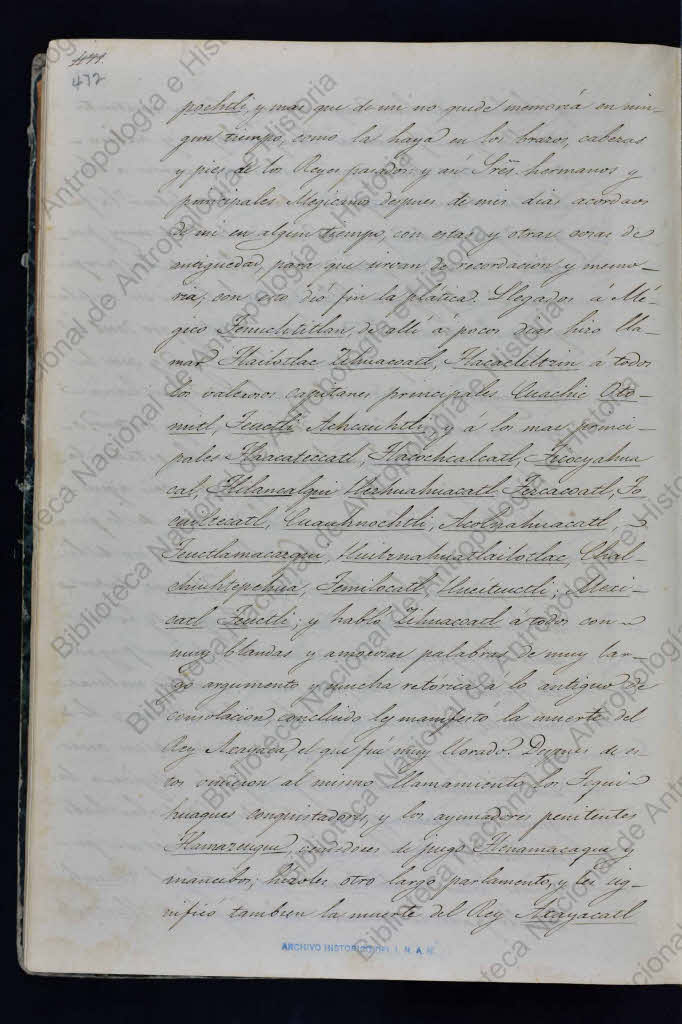 471
472
pochtli, y mas que de mi no quede memoria en nin-
gun tiempo, como la haya en los brazos, cabezas
y pies de los Reyes pasados: y asi Sres. hermanos y
principales Mexicanos despues de mis dias acordaos
de mi en algun tiempo, con estas y otras cosas de
antiguedad, para que sirvan de recordacion y memo-
ria, con esto dió fin la plática. Llegados á Mé-
gico Tenuchtitlan, de allí á pocos dias hizo lla-
mar Tlailotlac Zihuacoatl, Tlacaeleltzin á todos
los valerosos capitanes principales Cuachic Oto-
mitl, Teuctli Achcauhtli, y á los mas princi-
pales Tlacateccatl, Tlacochcalcatl, Ticocyahua
cal, Tlilancalqui Hezhuahuacatl Tezcacoatl, To
cuiltecatl, Cuauhnochtli, Acolnahuacatl,
Teuctlamacazqui, Huitznahuatlailotlac, Chal-
chiuhtepehua, Temilocatl Hueiteuctli, Mexi-
catl Teuctli; y habló Zihuacoatl á todos con
muy blandas y amorosas palabras de muy lar-
go argumento y mucha retórica, á lo antiguo de
consolacion, concluido les manifestó la muerte del
Rey Axayaca, el que fué muy llorado. Despues de es-
tos vinieron al mismo llamamiento los Tequi-
huaques conquistadores, y los ayunadores penitentes
Tlamazeuque, de fuego Tlenamacaque y
mancebos; hizoles otro largo parlamento, y les sig-
nificó tambien la muerte del Rey Axayacatl
ARCHIVO HISTORICO DEL I. N. A. H.
Biblioteca Nacional de Antropología e Historia